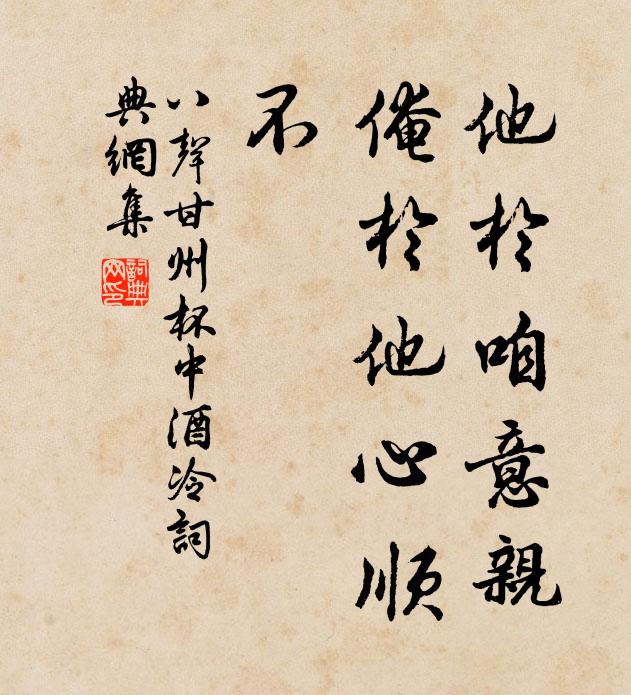 他於咱意親
俺於他心順
不
八聲甘州杯中酒冷詞
典網集
詞典
网印